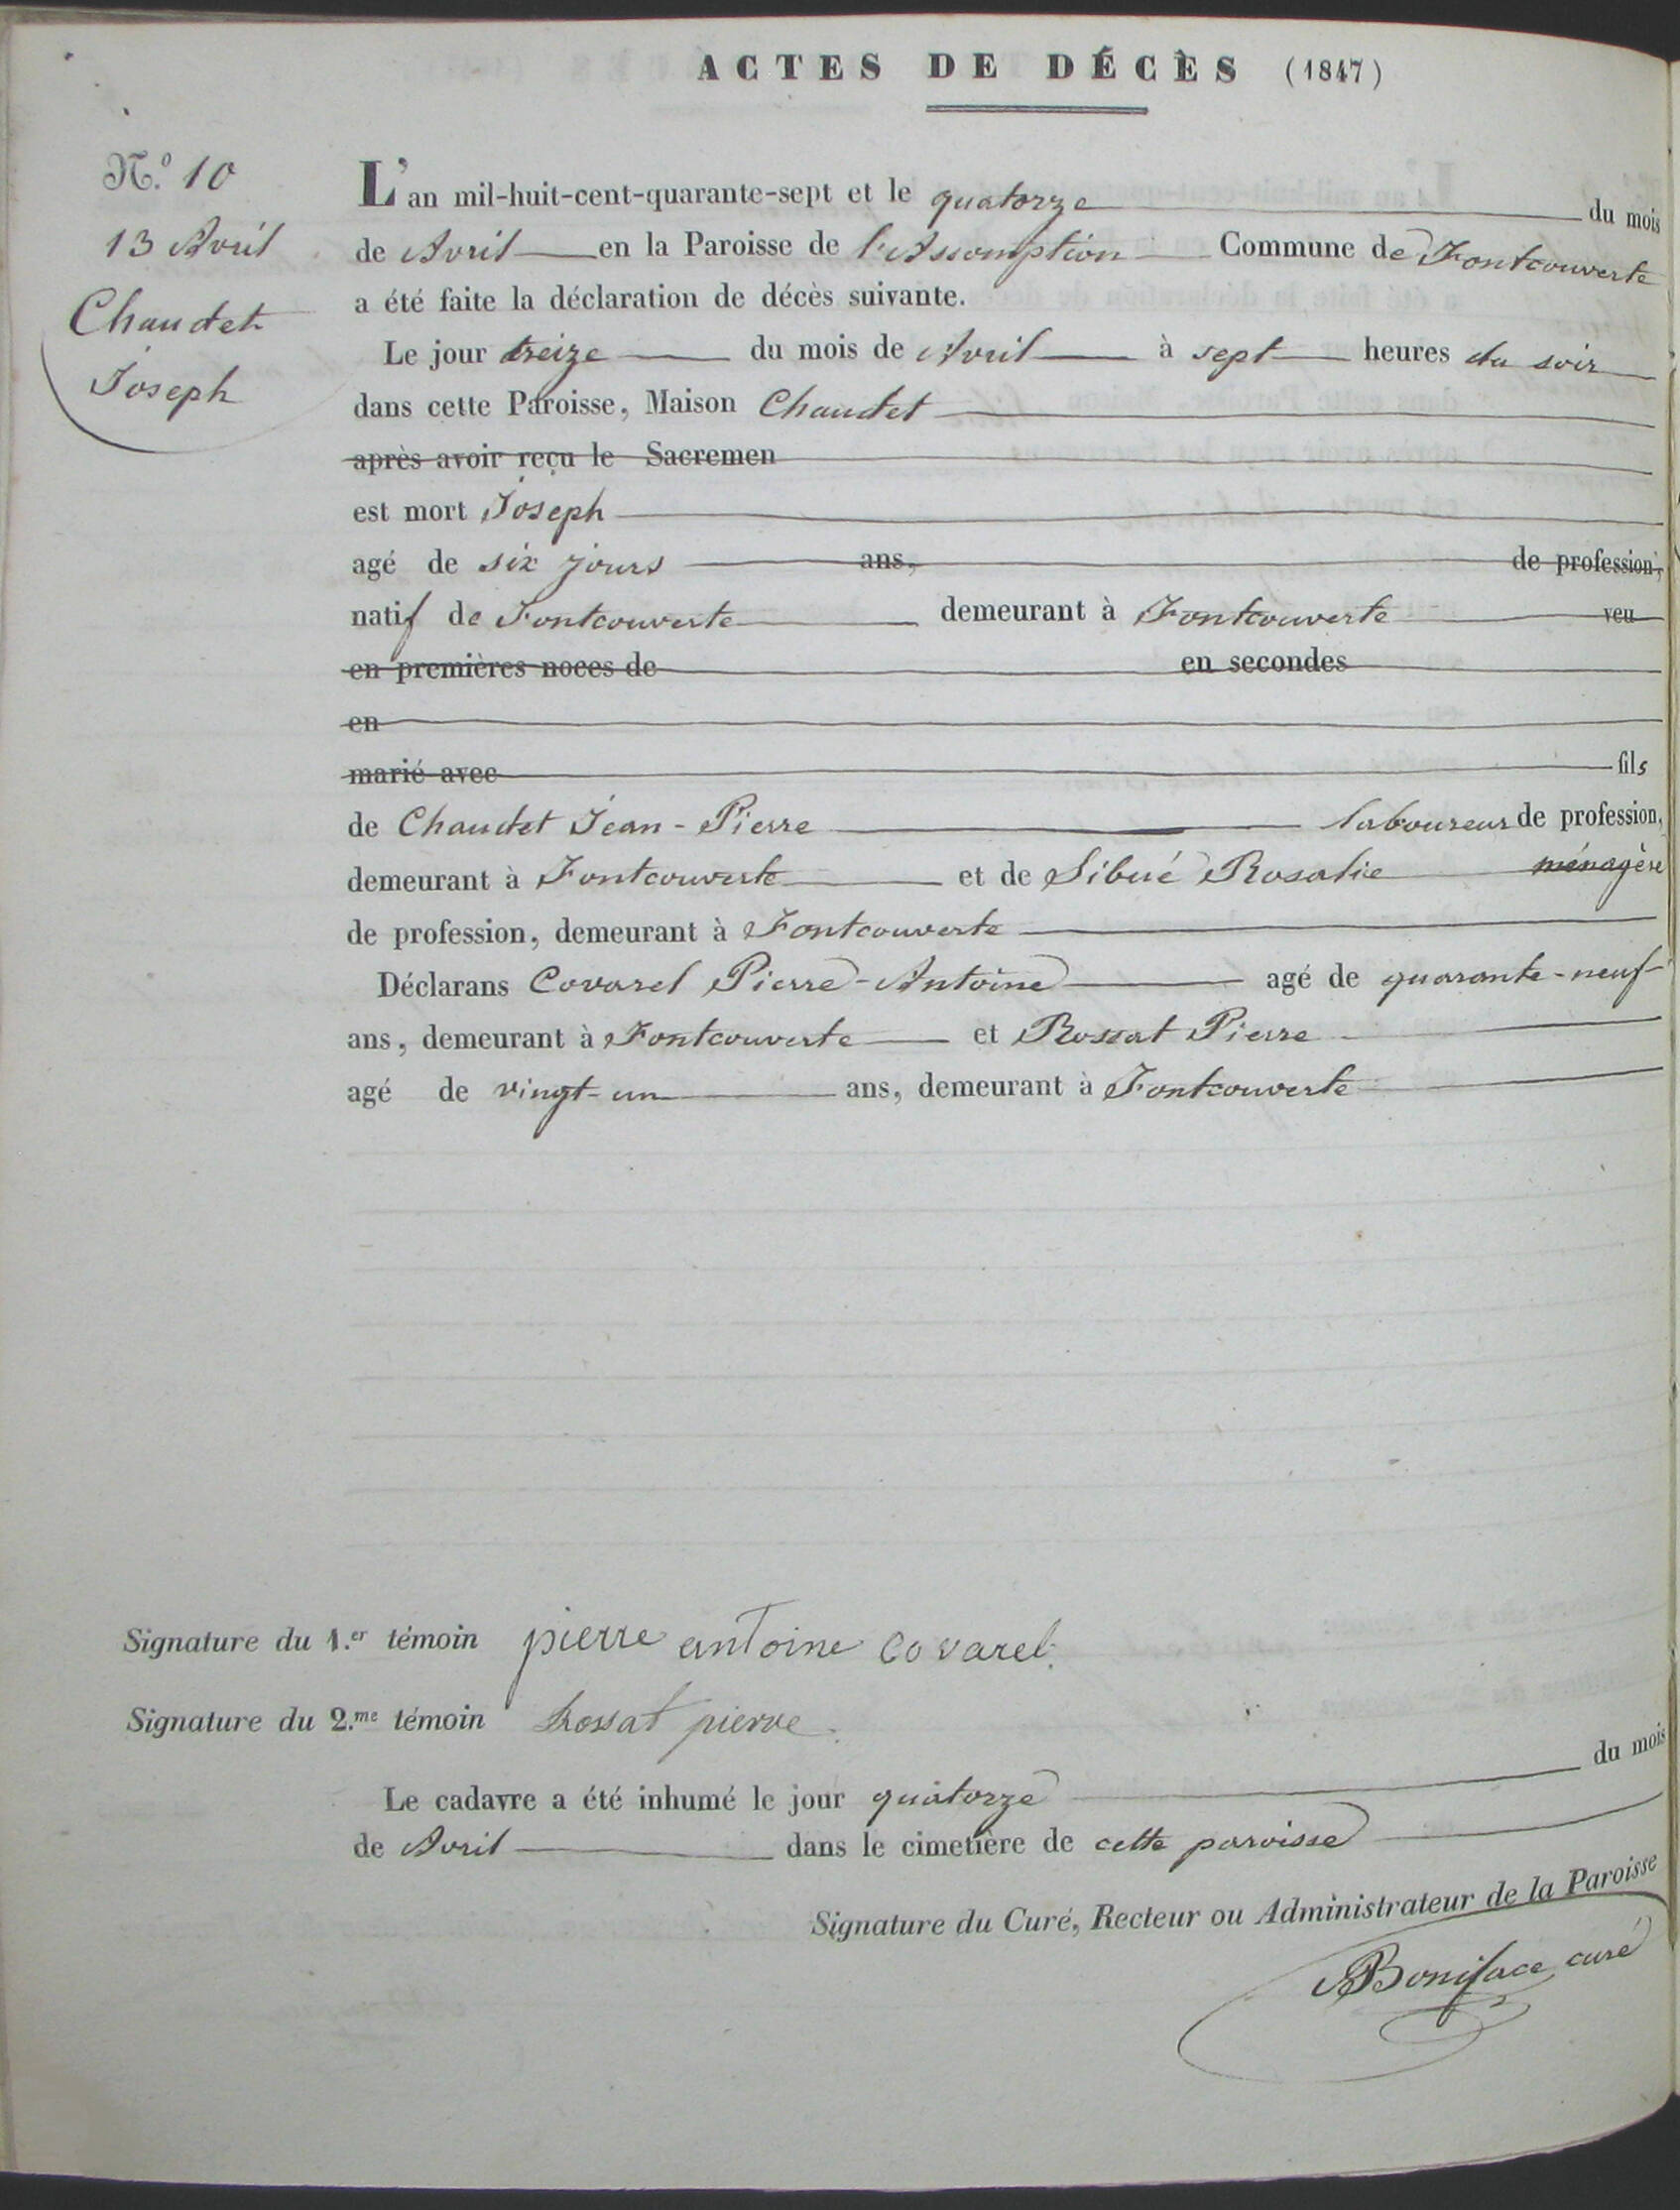 ACTES DE DÉCÈS (1847)
N.º 10
13 Avril
Chaudet
Joseph
L'an mil-huit-cent-quarante-sept et le quatorze du mois
de Avril en la Paroisse de l'Assomption Commune de Fontcouverte
a été faite la déclaration de décès suivante.
Le jour treize du mois de Avril à sept heures du soir
dans cette Paroisse, Maison Chaudet
après avoir reçu le Sacremen
est mort Joseph
agé de six jours ans, de profession,
natif de Fontcouverte demeurant à Fontcouverte veu
en premières noces de en secondes
en
marié avec fils
de Chaudet Jean-Pierre laboureur de profession,
demeurant à Fontcouverte et de Sibué Rosalie ménagère
de profession, demeurant à Fontcouverte
Déclarans Covarel Pierre-Antoine agé de quarante-neuf
ans, demeurant à Fontcouverte et Rossat Pierre
agé de vingt-un ans, demeurant à Fontcouverte
Signature du 1.er témoin pierre antoine covarel.
Signature du 2.me témoin Rossat pierre.
Le cadavre a été inhumé le jour quatorze du mois
de Avril dans le cimetière de cette paroisse
Signature du Curé, Recteur ou Administrateur de la Paroisse
Boniface curé